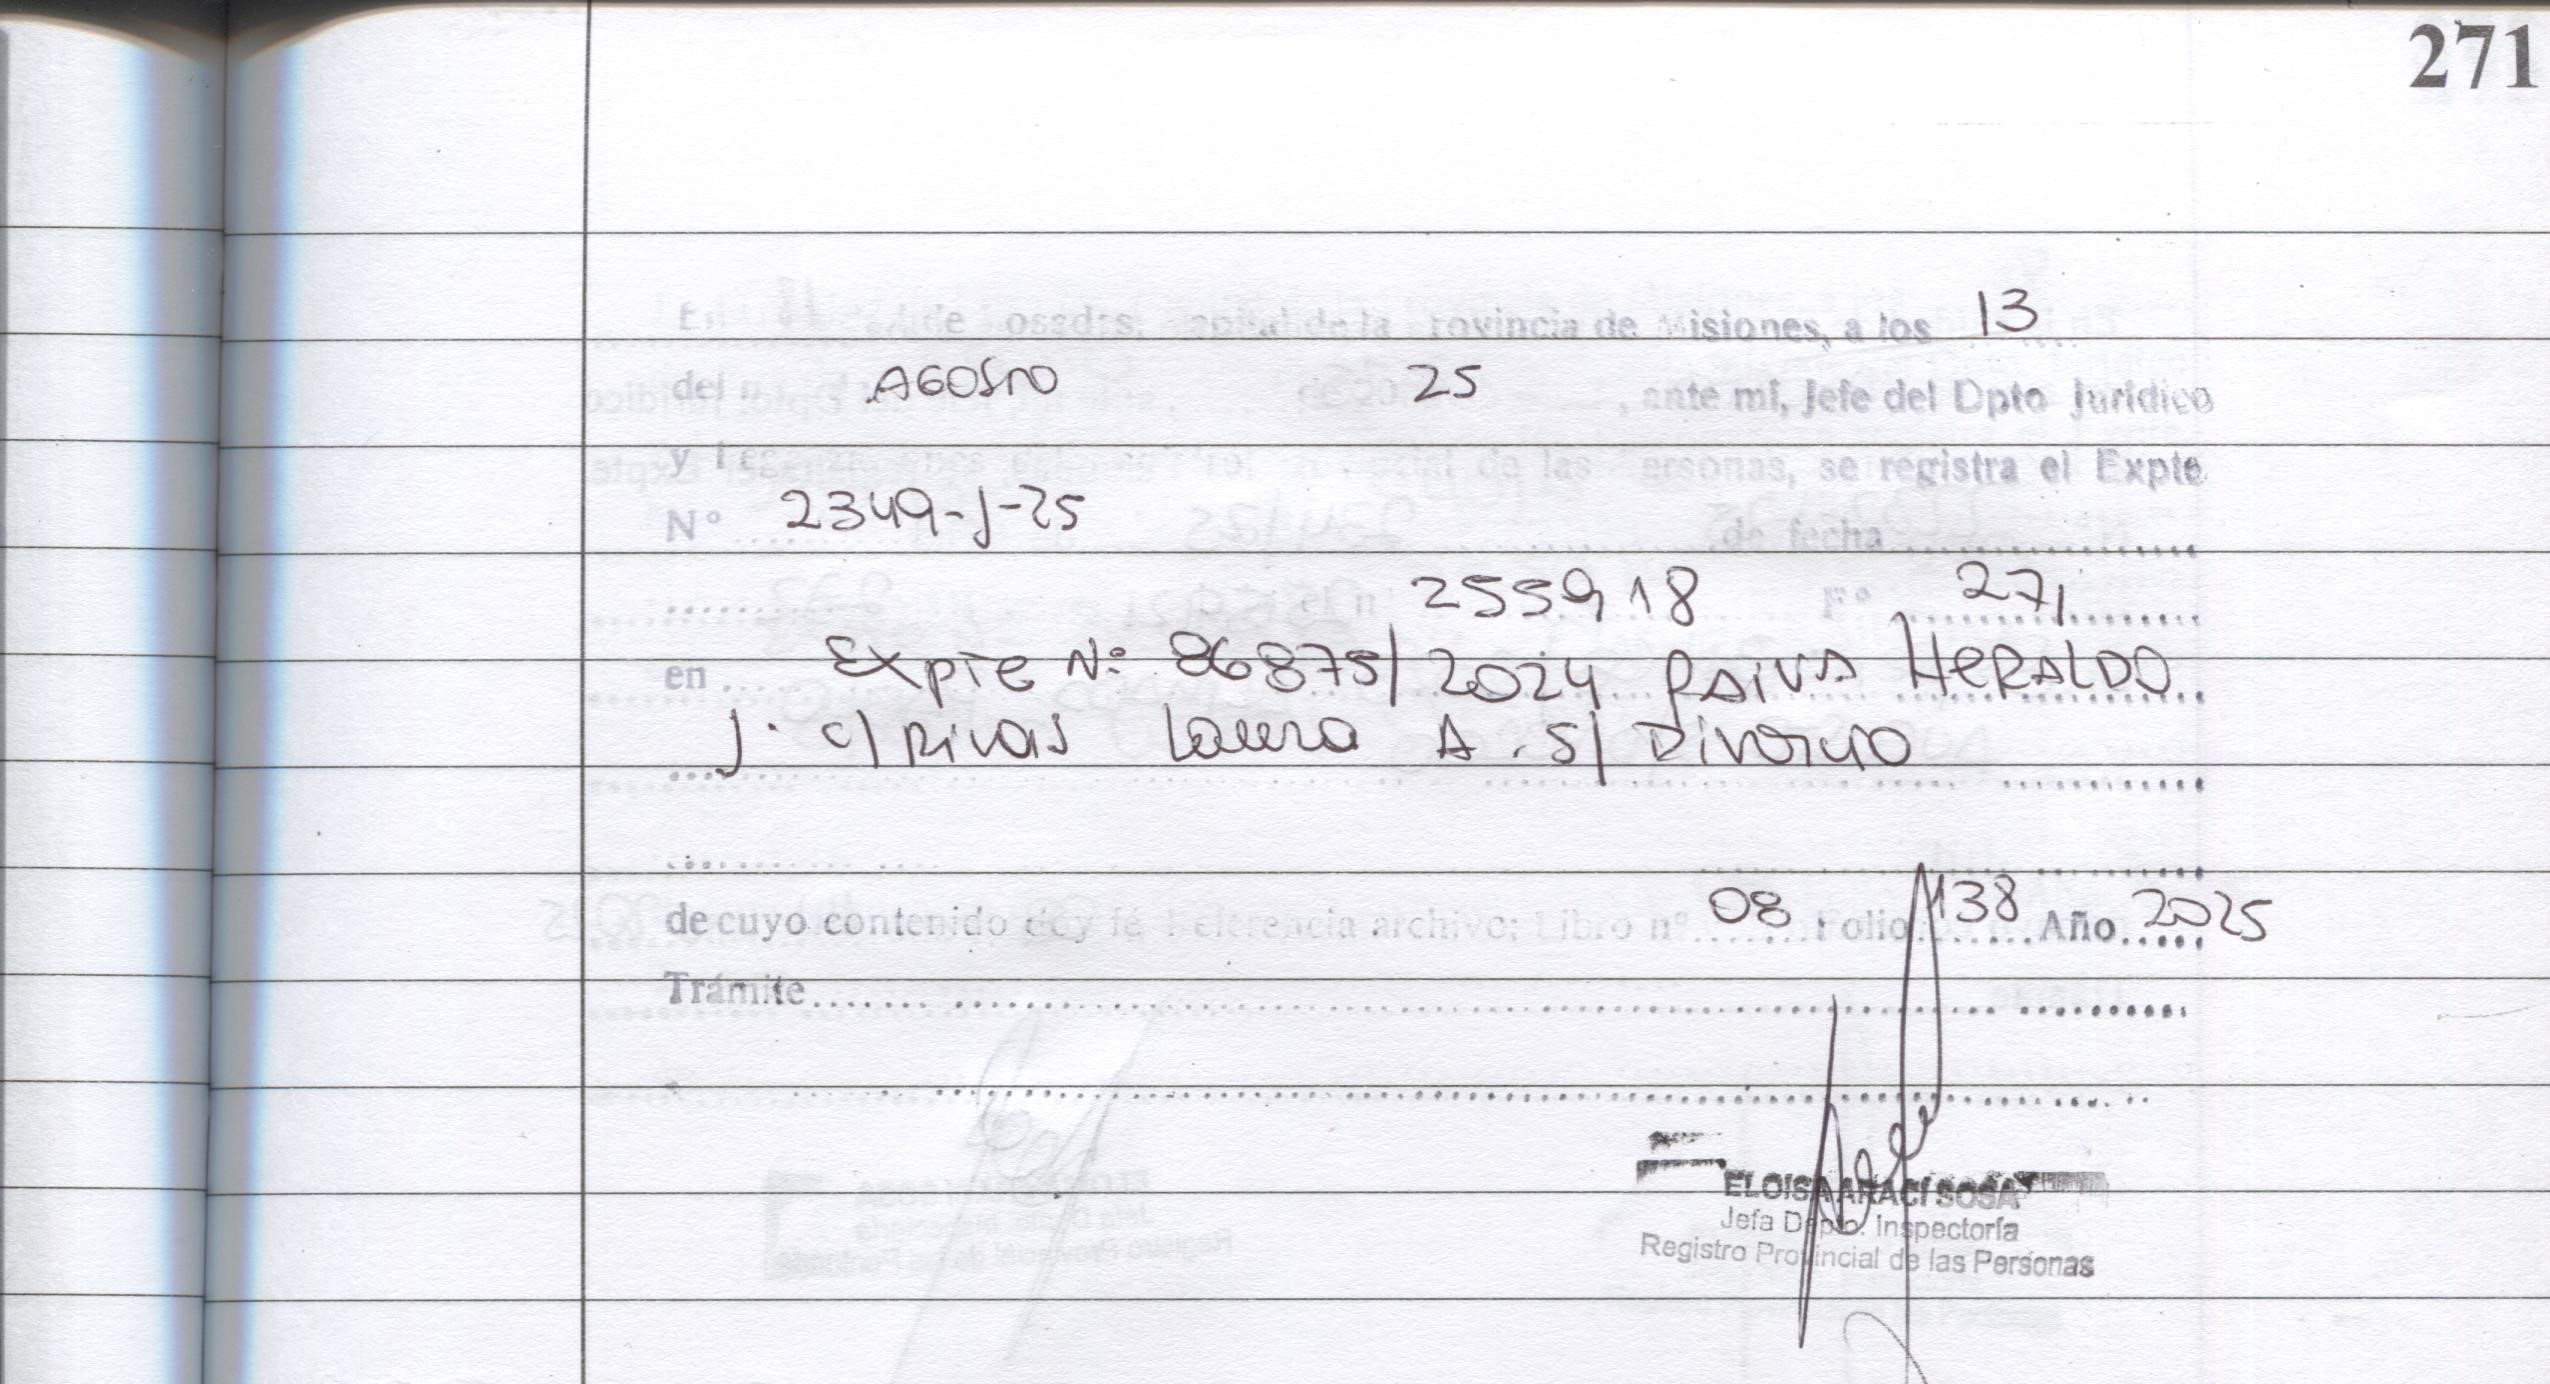 271
de osadas, capital de la rovincia de Misiones, a los 13
del AGOSTO 25, ante mí, Jefe del Dpto Jurídico
y de las ersonas, se registra el Expte
N° 2349-J-25 de fecha
255918 F° 271
en Expte N: 86875/2024 PAIVA HERALDO
J. c/ RIVAS Laura A. S/ Divorcio
de cuyo contenido doy fé Referencia archivo: Libro n° 08 Folio 138 Año 2025
Trámite
ELOISA ARACI SOSA
Jefa Dpto. Inspectoría
Registro Provincial de las Personas